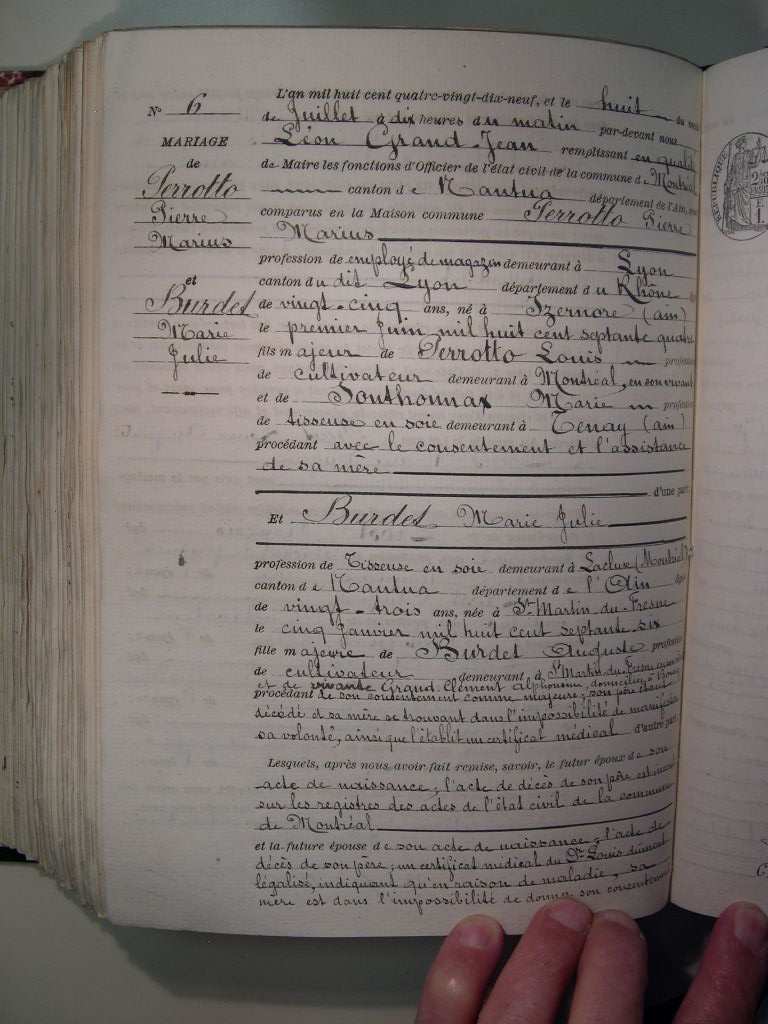 N° 6
MARIAGE
de
Perrotto
Pierre
Marius
et
Burdet
Marie
Julie
L'an mil huit cent quatre-vingt-dix-neuf, et le huit du mois
de Juillet à dix heures du matin par-devant nous
Léon Grand-Jean remplissant en qualité
de Maire les fonctions d'Officier de l'état civil de la commune de Montréal
canton de Nantua département de l'Ain, sont
comparus en la Maison commune Perrotto Pierre
Marius
profession de employé de magazin demeurant à Lyon
canton du dit Lyon département du Rhône
de vingt-cinq ans, né à Izernore (ain)
le premier Juin mil huit cent septante quatre
fils majeur de Perrotto Louis profession
de cultivateur demeurant à Montréal, en son vivant
et de Southonnax Marie profession
de tisseuse en soie demeurant à Tenay (ain)
procédant avec le consentement et l'assistance
de sa mère
d'une part.
Et Burdet Marie Julie
profession de Tisseuse en soie demeurant à Lacluse (Montréal)
canton de Nantua département de l'Ain
de vingt-trois ans, née à St Martin-du-Fresne
le cinq Janvier mil huit cent septante-six
fille majeure de Burdet Auguste profession
de cultivateur demeurant à St Martin-du-Fresne
et de vivante Grand-Clément Alphonsine, domiciliée à
procédant de son consentement comme majeure; son père étant
décédé et sa mère se trouvant dans l'impossibilité de manifester
sa volonté, ainsi que l'établit un certificat médical d'autre part.
Lesquels, après nous avoir fait remise, savoir, le futur époux de son
acte de naissance; l'acte de décès de son père est inscrit
sur les registres des actes de l'état civil de la commune
de Montréal
et la future épouse de son acte de naissance; l'acte de
décès de son père; un certificat médical du Dr Louis dûment
légalisé, indiquant qu'en raison de maladie, sa
mère est dans l'impossibilité de donner son consentement
RÉPUBLIQUE